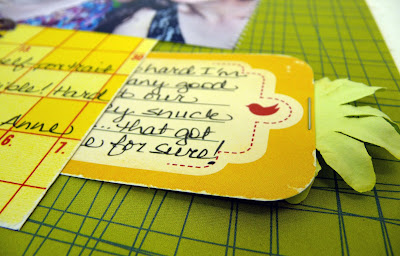 self-portrait
ple! Hard
Anne
6. 7.
hard I'm
any good
our
ey snuck
...that got
e for sure!